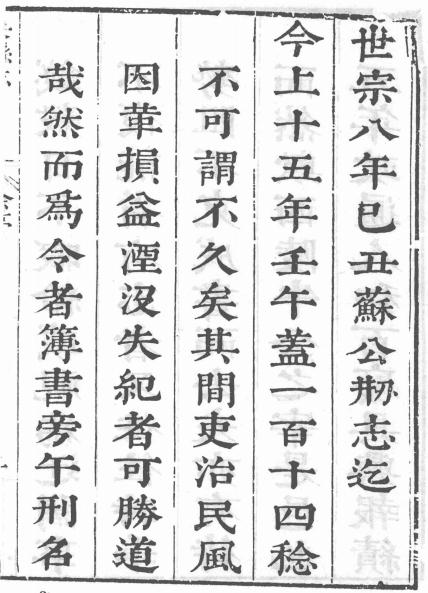 世宗八年己丑蘇公刱志迄
今上十五年壬午蓋一百十四稔
不可謂不久矣其間吏治民風
因革損益湮沒失紀者可勝道
哉然而爲令者簿書旁午刑名